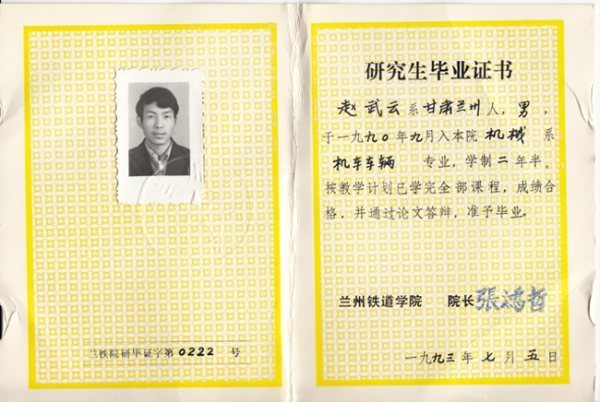 兰铁院研毕证字第0222 号
研究生毕业证书
赵武云系甘肃兰州人，男，
于一九九〇年九月入本院机械系
机车车辆 专业，学制二年半。
按教学计划已学完全部课程，成绩合
格，并通过论文答辩，准予毕业。
兰州铁道学院 院长 張鸿哲
一九九三年七月五日